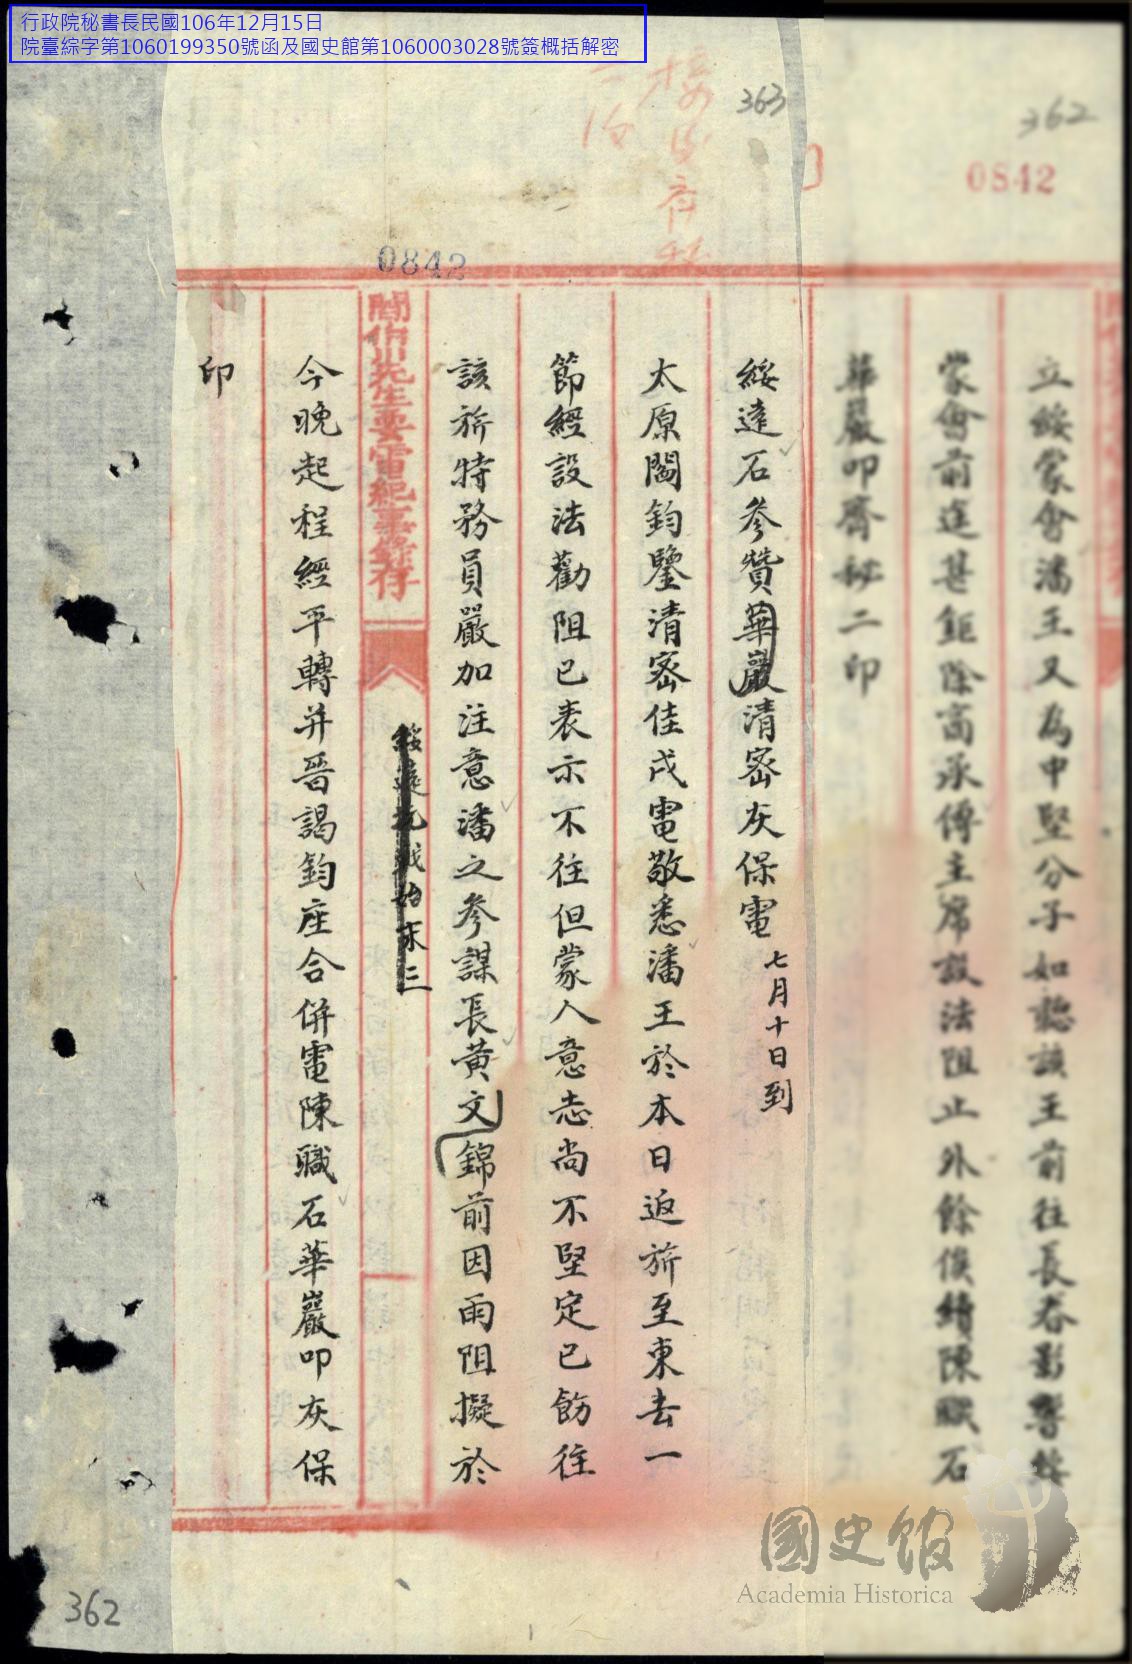 行政院秘書長民國106年12月15日
院臺綜字第1060199350號函及國史館第1060003028號簽概括解密
362
0842
立綏蒙會潘王又為中堅分子如聽該王前往長春影響綏
蒙會前途甚鉅除商承傅主席設法阻止外餘俟續陳職石
華嚴叩齊秘二印
363
綏遠石參贊華巖清密灰保電 七月十日到
太原閻鈞鑒清密佳戌電敬悉潘王於本日返旂至東去一
節經設法勸阻已表示不往但蒙人意志尚不堅定已飭往
該旂特務員嚴加注意潘之參謀長黄文錦前因雨阻擬於
0842
閻伯川先生要電紀事錄存
綏遠抗戰始末三
今晚起程經平轉并晉謁鈞座合併電陳職石華巖叩灰保
印
362
國史館
Academia Historica